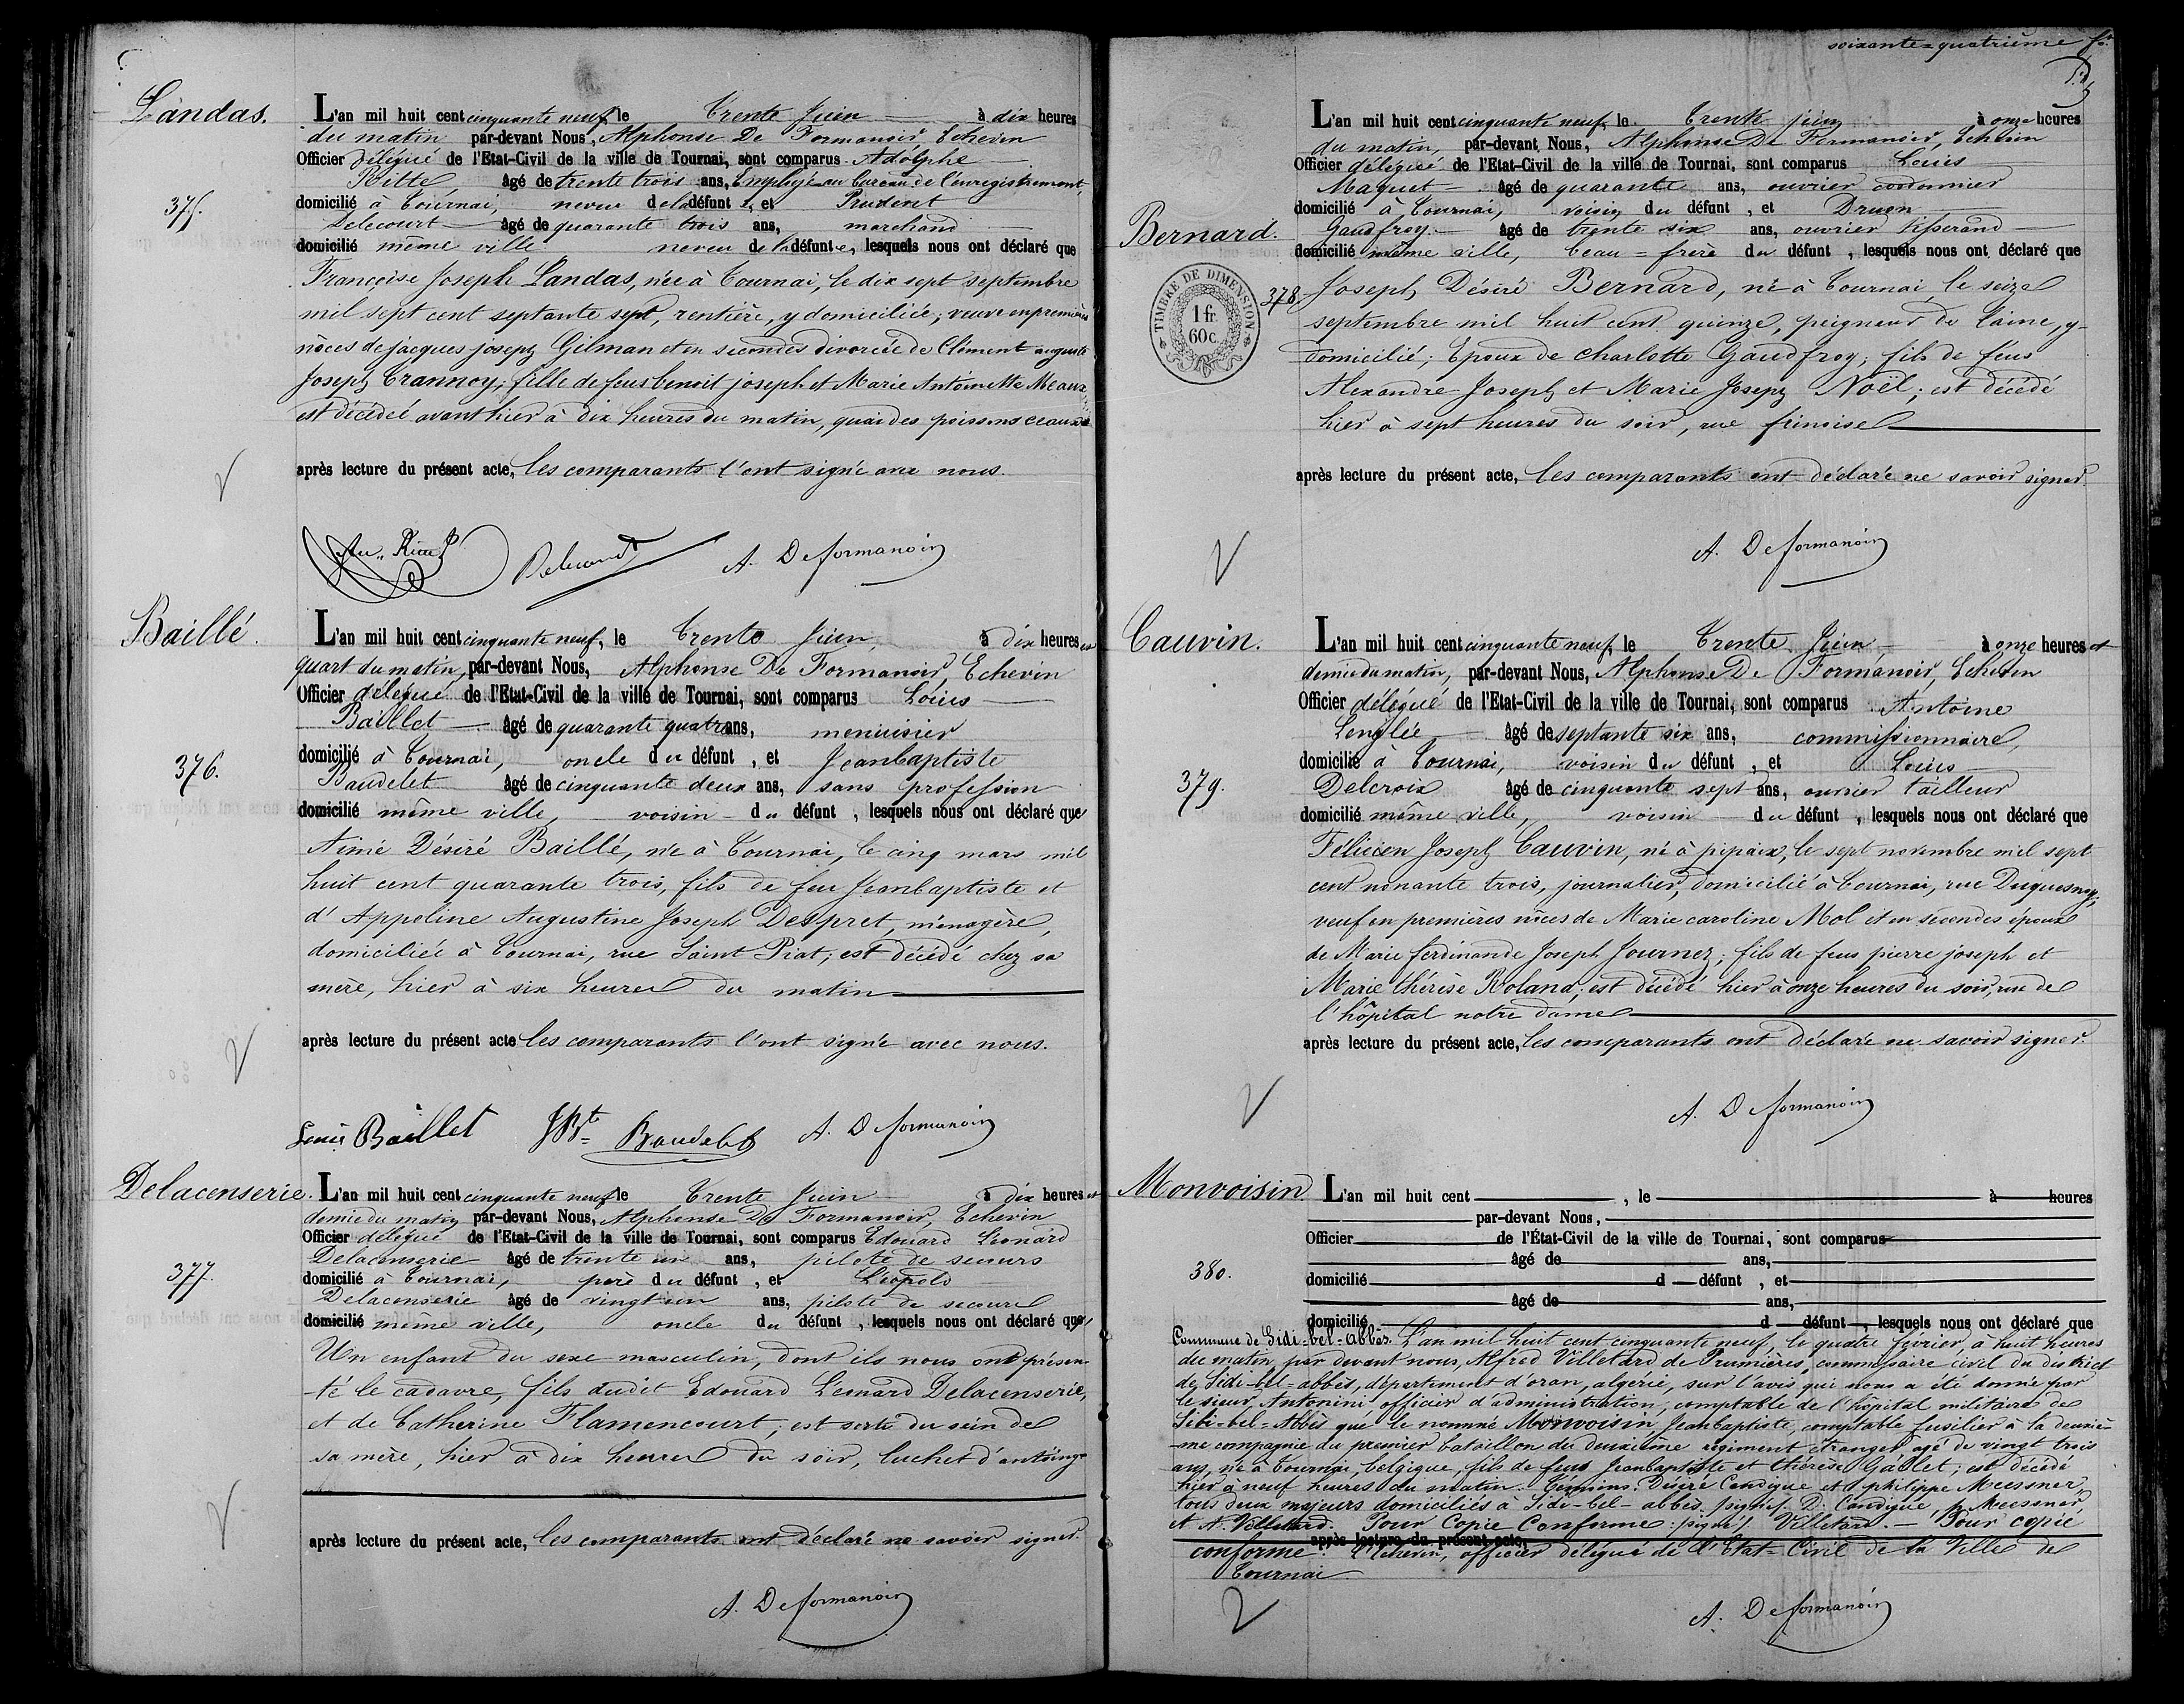 Landas.
375.
L'an mil huit cent cinquante neuf, le Trente Juin à dix heures
du matin par-devant Nous, Alphonse De Formanoir, Echevin
Officier délégué de l'Etat-Civil de la ville de Tournai, sont comparus Adolphe
Ritte, âgé de trente trois ans, Employé au bureau de l'enregistrement,
domicilié à Tournai, neveu de la défunte, et Prudent
Delecourt âgé de quarante trois ans, marchand
domicilié même ville neveu de la défunte, lesquels nous ont déclaré que
Françoise Joseph Landas, née à Tournai, le dix sept septembre
mil sept cent septante sept, rentière, y domiciliée; veuve en premières
nôces de jacques joseph Gilman et en secondes divorcée de Clément auguste
Joseph Trannoy; fille de feus benoit joseph et Marie Antoinette Meaux
est décédée avant hier à dix heures du matin, quai des poissonsceaux
après lecture du présent acte, les comparants l'ont signé avec nous.
Delecourt A. Deformanoir
Baillé.
376.
L'an mil huit cent cinquante neuf, le Trente Juin, à dix heures et
quart du matin, par-devant Nous, Alphonse De Formanoir, Echevin
Officier délégué de l'Etat-Civil de la ville de Tournai, sont comparus Louis
Baillet âgé de quarante quatre ans, menuisier
domicilié à Tournai, oncle du défunt, et Jeanbaptiste
Baudelet âgé de cinquante deux ans, sans profession
domicilié même ville, voisin du défunt, lesquels nous ont déclaré que
Aimé Désiré Baillé, né à Tournai, le cinq mars mil
huit cent quarante trois, fils de feu Jeanbaptiste et
d'Appoline Augustine Joseph Despret, ménagère,
domiciliée à Tournai, rue Saint Piat; est décédé chez sa
mère, hier à six heures du matin
après lecture du présent acte les comparants l'ont signé avec nous.
Louis Baillet JBte Baudelet A. Deformanoir
Delacenserie.
377.
L'an mil huit cent cinquante neuf le Trente Juin à dix heures et
demie du matin par-devant Nous, Alphonse De Formanoir, Echevin
Officier délégué de l'Etat-Civil de la ville de Tournai, sont comparus Edouard Léonard
Delacenserie âgé de trente un ans, pilote de secours
domicilié à Tournai, père du défunt, et Léopold
Delacenserie âgé de vingt un ans, pilote de secours
domicilié même ville, oncle du défunt, lesquels nous ont déclaré que,
Un enfant du sexe masculin, dont ils nous ont présen-
-té le cadavre, fils dudit Edouard Léonard Delacenserie,
et de Catherine Flamencourt; est sorti du sein de
sa mère, hier à dix heures du soir, luchet d'antoing
après lecture du présent acte, les comparants ont déclaré ne savoir signer
A. Deformanoir
soixante=quatrième
Bernard.
TIMBRE DE DIMENSION
1 fr.
60 c.
378.
L'an mil huit cent cinquante neuf, le Trente juin à onze heures
du matin, par-devant Nous, Alphonse De Formanoir, Echevin
Officier délégué de l'Etat-Civil de la ville de Tournai, sont comparus Louis
Maquet âgé de quarante ans, ouvrier cordonnier
domicilié à Tournai, voisin du défunt, et Druon
Gaudfroy âgé de trente six ans, ouvrier tisserand
domicilié même ville, beau=frère du défunt, lesquels nous ont déclaré que
Joseph Désiré Bernard, né à Tournai, le seize
septembre mil huit cent quinze, peigneur de laine, y
domicilié; Epoux de charlotte Gaudfroy; fils de feus
Alexandre Joseph et Marie Joseph Noël; est décédé
hier à sept heures du soir, rue frinoise
après lecture du présent acte, les comparants ont déclaré ne savoir signer.
A. Deformanoir
Cauvin.
379.
L'an mil huit cent cinquante neuf, le Trente Juin à onze heures et
demie du matin, par-devant Nous, Alphonse De Formanoir, Echevin
Officier délégué de l'Etat-Civil de la ville de Tournai, sont comparus Antoine
Lenglée âgé de septante six ans, commissionnaire,
domicilié à Tournai, voisin du défunt, et Louis
Delcroix âgé de cinquante sept ans, ouvrier tailleur
domicilié même ville, voisin du défunt, lesquels nous ont déclaré que
Félicien Joseph Cauvin, né à pipaix, le sept novembre mil sept
cent nonante trois, journalier, domicilié à Tournai, rue Duquesnoy;
veuf en premières nôces de Marie caroline Mol et en secondes époux
de Marie ferdinande Joseph Journez; fils de feus pierre joseph et
Marie thérèse Roland; est décédé hier à onze heures du soir, rue de
l'hôpital notre dame
après lecture du présent acte, les comparants ont déclaré ne savoir signer.
A. Deformanoir
Monvoisin
380.
L'an mil huit cent , le à heures
par-devant Nous,
Officier de l'État-Civil de la ville de Tournai, sont comparus
âgé de ans,
domicilié d défunt, et
âgé de ans,
domicilié d défunt, lesquels nous ont déclaré que
Commune de Sidi-bel-abbès. L'an mil huit cent cinquante neuf, le quatre février, à huit heures
du matin, par devant nous, Alfred Villetard de Prunières, commissaire civil du district
de Sidi-bel-abbès, département d'oran, algérie, sur l'avis qui nous a été donné par
le sieur Antonini officier d'administration, comptable de l'hôpital militaire de
Sidi-bel-Abbès que le nommé Monvoisin, Jeanbaptiste, comptable fusilier à la deuxiè-
-me compagnie du premier bataillon du deuxième régiment étranger, agé de vingt trois
ans, né à Tournai, belgique, fils de feus Jeanbaptiste et thérèse Gallet; est décédé
hier à neuf heures du matin. Témoins: Désiré Candigue et philippe Meessner,
tous deux majeurs domiciliés à Sidi-bel-abbès. signé D. Candigue, p. Meessner,
et A. Villetard. Pour Copie Conforme: signé Villetard. — Pour copie
après lecture du présent acte,
conforme: L'Echevin, officier délégué de l'Etat-Civil de la Ville de
Tournai.
A. Deformanoir